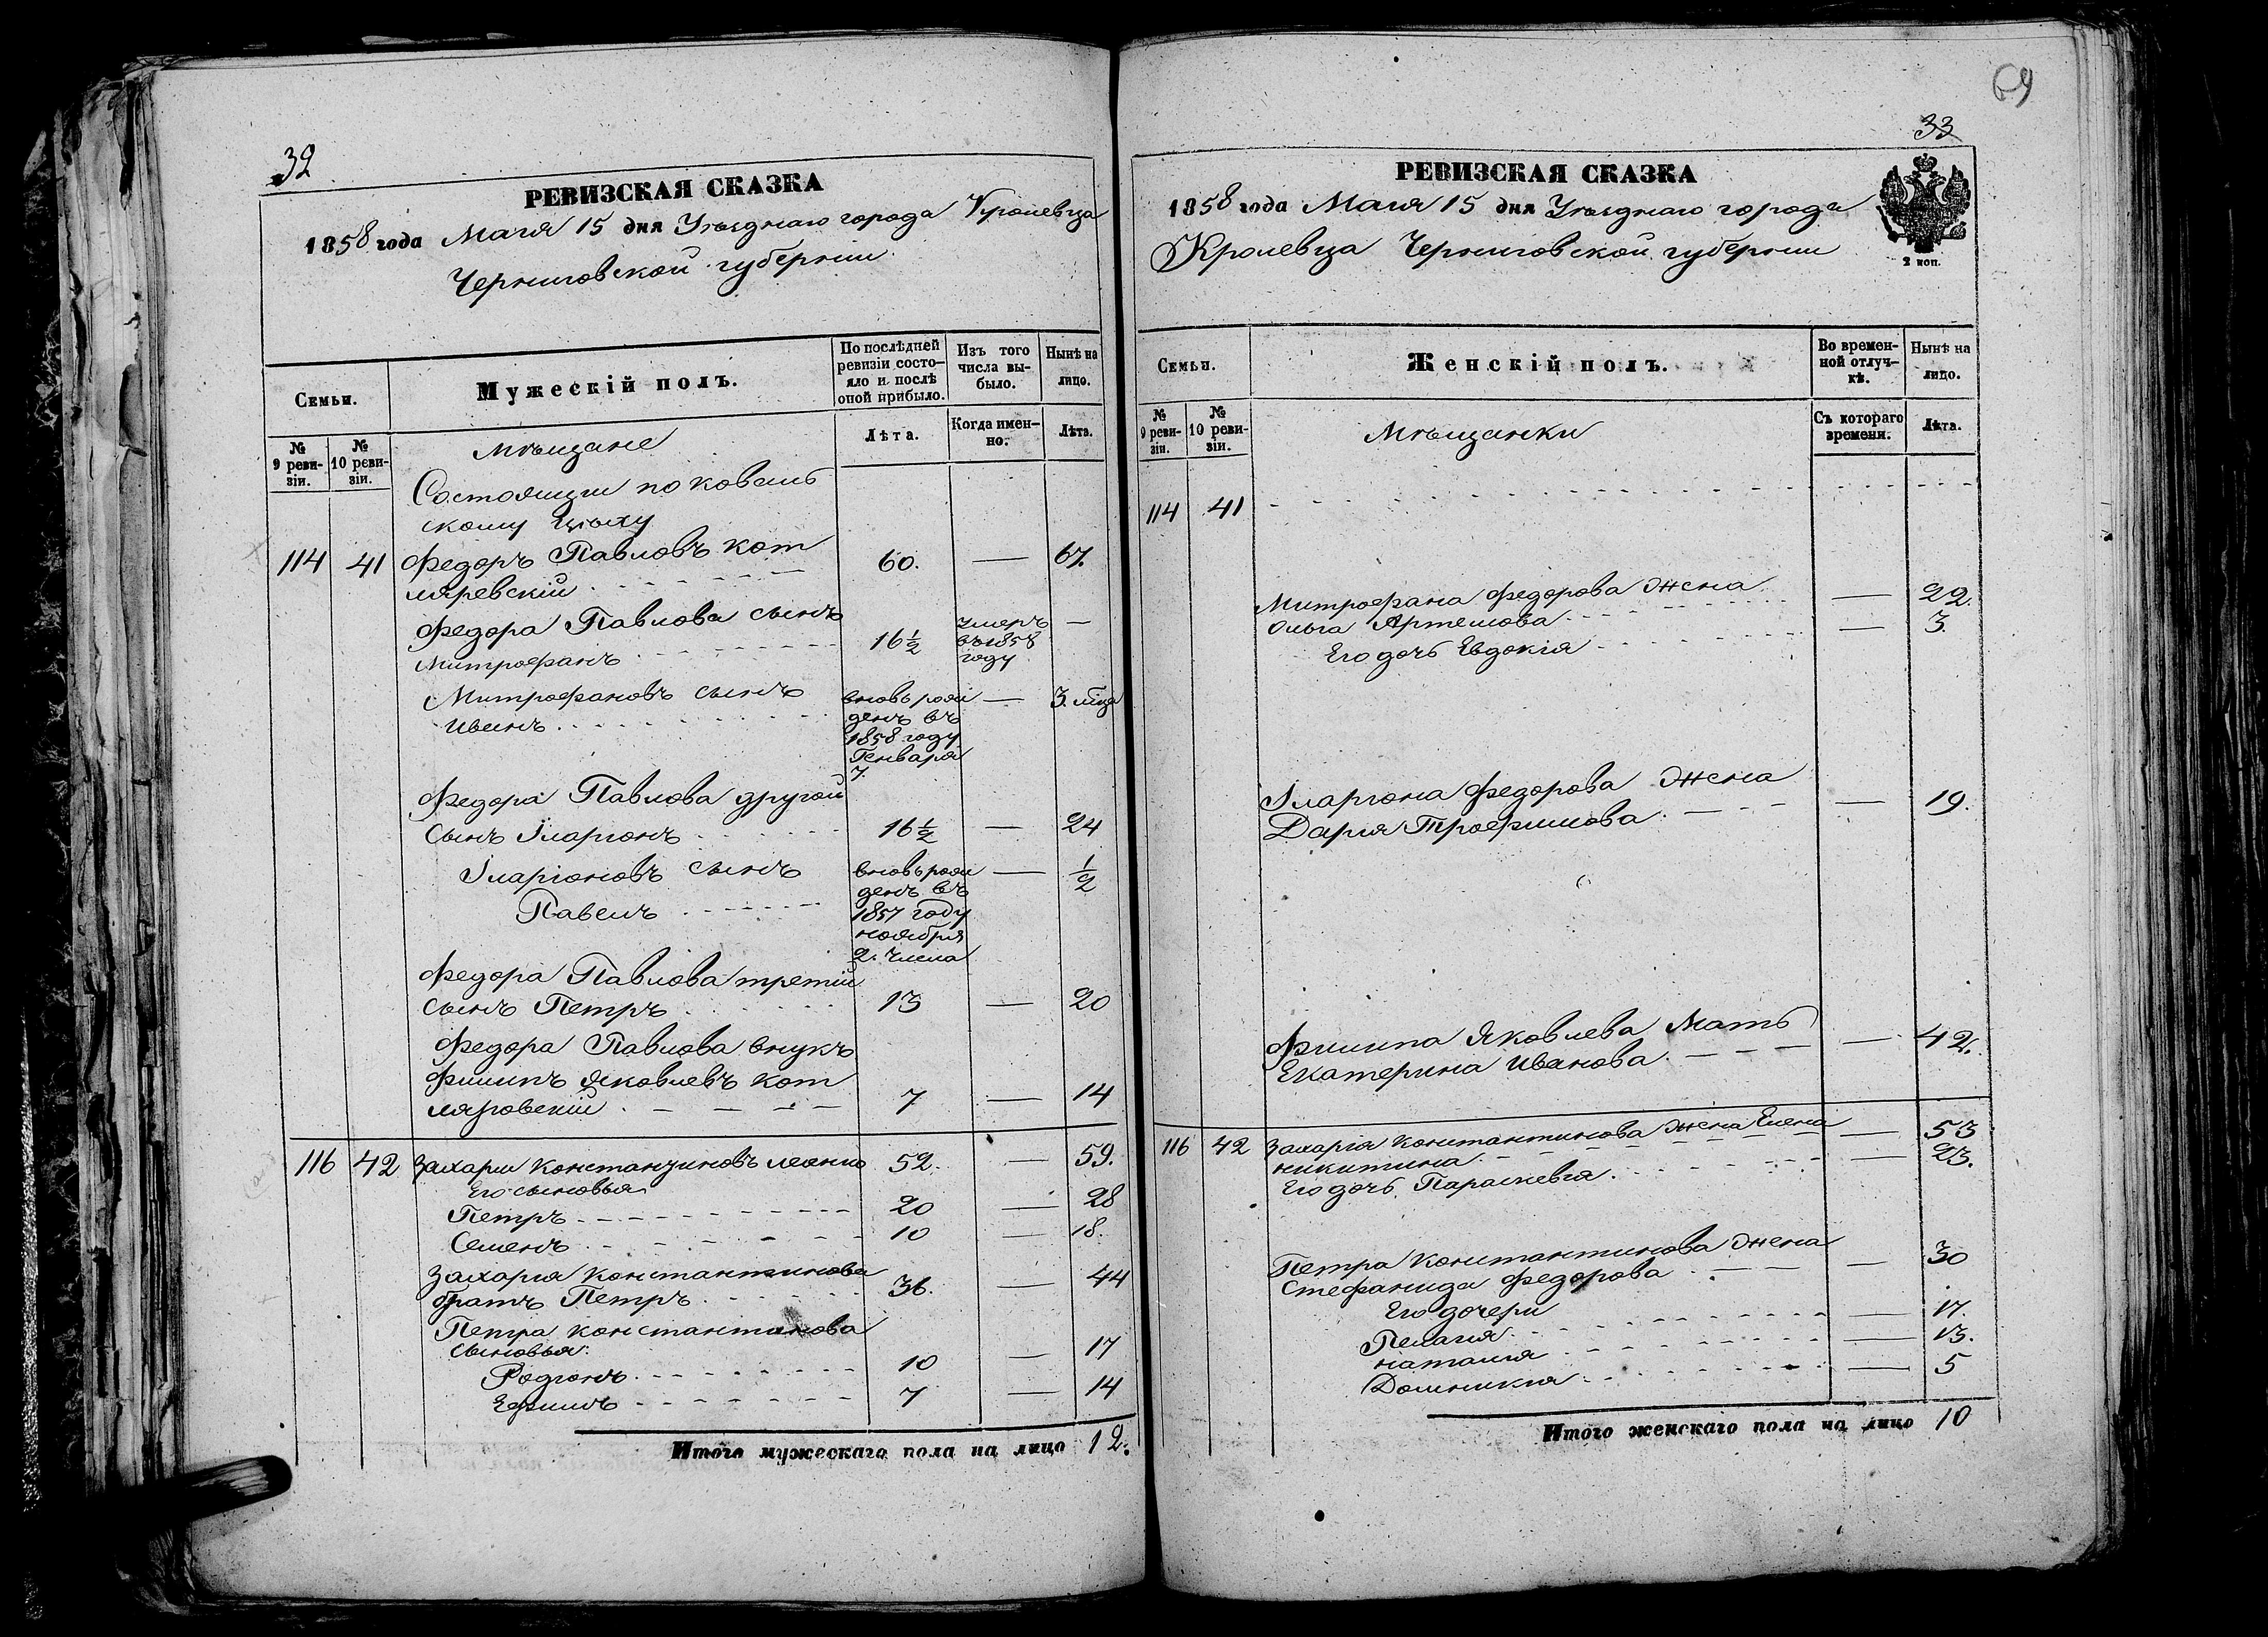 32
РЕВИЗСКАЯ СКАЗКА
1858 года Маия 15 дня Уѣзднаго города Кролевца
Черниговской губерніи
Семьи.
Мужескій полъ.
По послѣдней ревизіи состо-
яло и послѣ
оной прибыло.
Изъ того
числа вы-
было.
Нынѣ на
лицо.
№
9 реви-
зіи.
№
10 реви-
зіи.
Мѣщане
Лѣта.
Когда имен-
но.
Лѣта.
Состоящии по коваль
скому цѣху
114 41 Федоръ Павловъ кот 60. — 67.
ляревскій
Федора Павлова сынъ
Митрофанъ 16 ½ умеръ
въ 1858
году —
Митрофановъ сынъ
Иванъ вновь рож
денъ въ
1858 году
Генваря
7. — 3. мца
Федора Павлова другой
сынъ Іларіонъ 16 ½ — 24
Іларіоновъ сынъ
Павелъ вновь рож
денъ въ
1857 году
ноября
2. числа — ½
Федора Павлова третій
сынъ Петръ 13 — 20
Федора Павлова внукъ
Филипъ Яковлевъ кот
ляровскій 7 — 14
116 42 Захарій Константиновъ 52. — 59.
Его сыновья
Петръ 20 — 28
Семенъ 10 — 18.
Захарія Константинова
братъ Петръ 36. — 44
Петра Константинова
сыновья
Родіонъ 10 — 17
Ефимъ 7 — 14
Итого мужескаго пола на лицо 12.
69
33
РЕВИЗСКАЯ СКАЗКА
1858 года Маия 15 дня Уѣзднаго города
Кролевца Черниговской губерніи
2 коп.
Семьи.
Женскій полъ.
Во времен-
ной отлуч-
кѣ.
Нынѣ на
лицо.
№
9 реви-
зіи.
№
10 реви-
зіи.
Мѣщанки
Съ котораго
времени.
Лѣта.
114 41
Митрофана Федорова жена
Ольга Артемова — 22.
Его дочь Евдокія — 3.
Іларіона Федорова жена
Дарія Трофимова — 19.
Филипа Яковлева Мать
Екатерина Иванова — 42.
116 42 Захарія Константинова жена Елена
Никитина — 53
Его дочь Параскевія — 23.
Петра Константинова жена
Стефанида Федорова — 30
Его дочери
Пелагія — 17.
Наталія — 13.
Домникія — 5
Итого женскаго пола на лицо 10